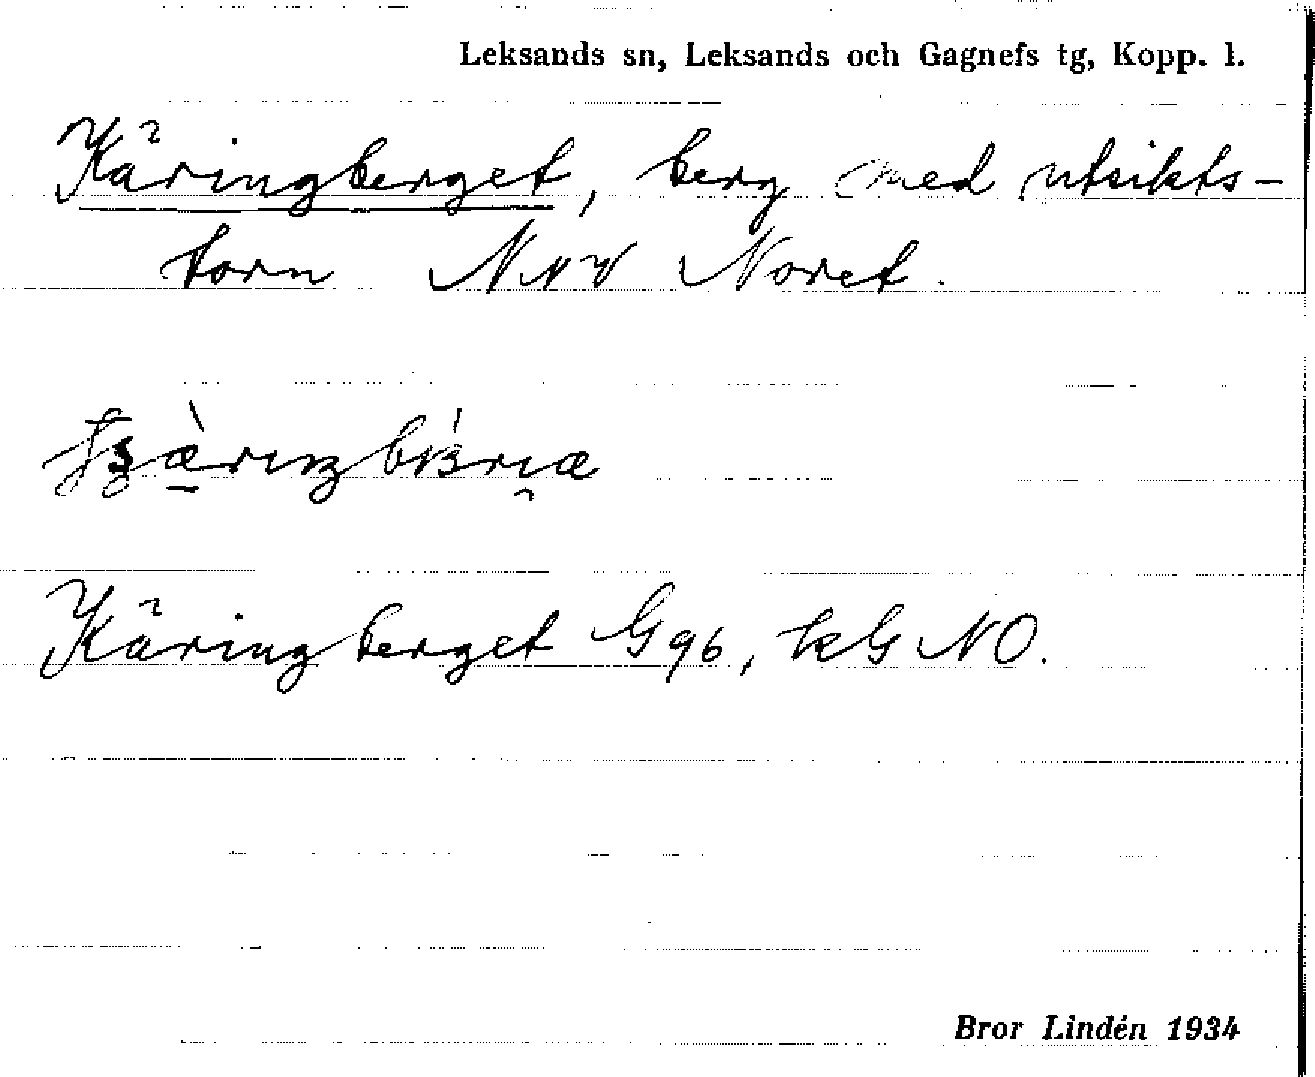 Leksands sn, Leksands och Gagnefs tg, Kopp. l.
Käringberget, berg med utsikts-
torn NNV Noret.
Käringberget G96, kG NO.
Bror Lindén 1934